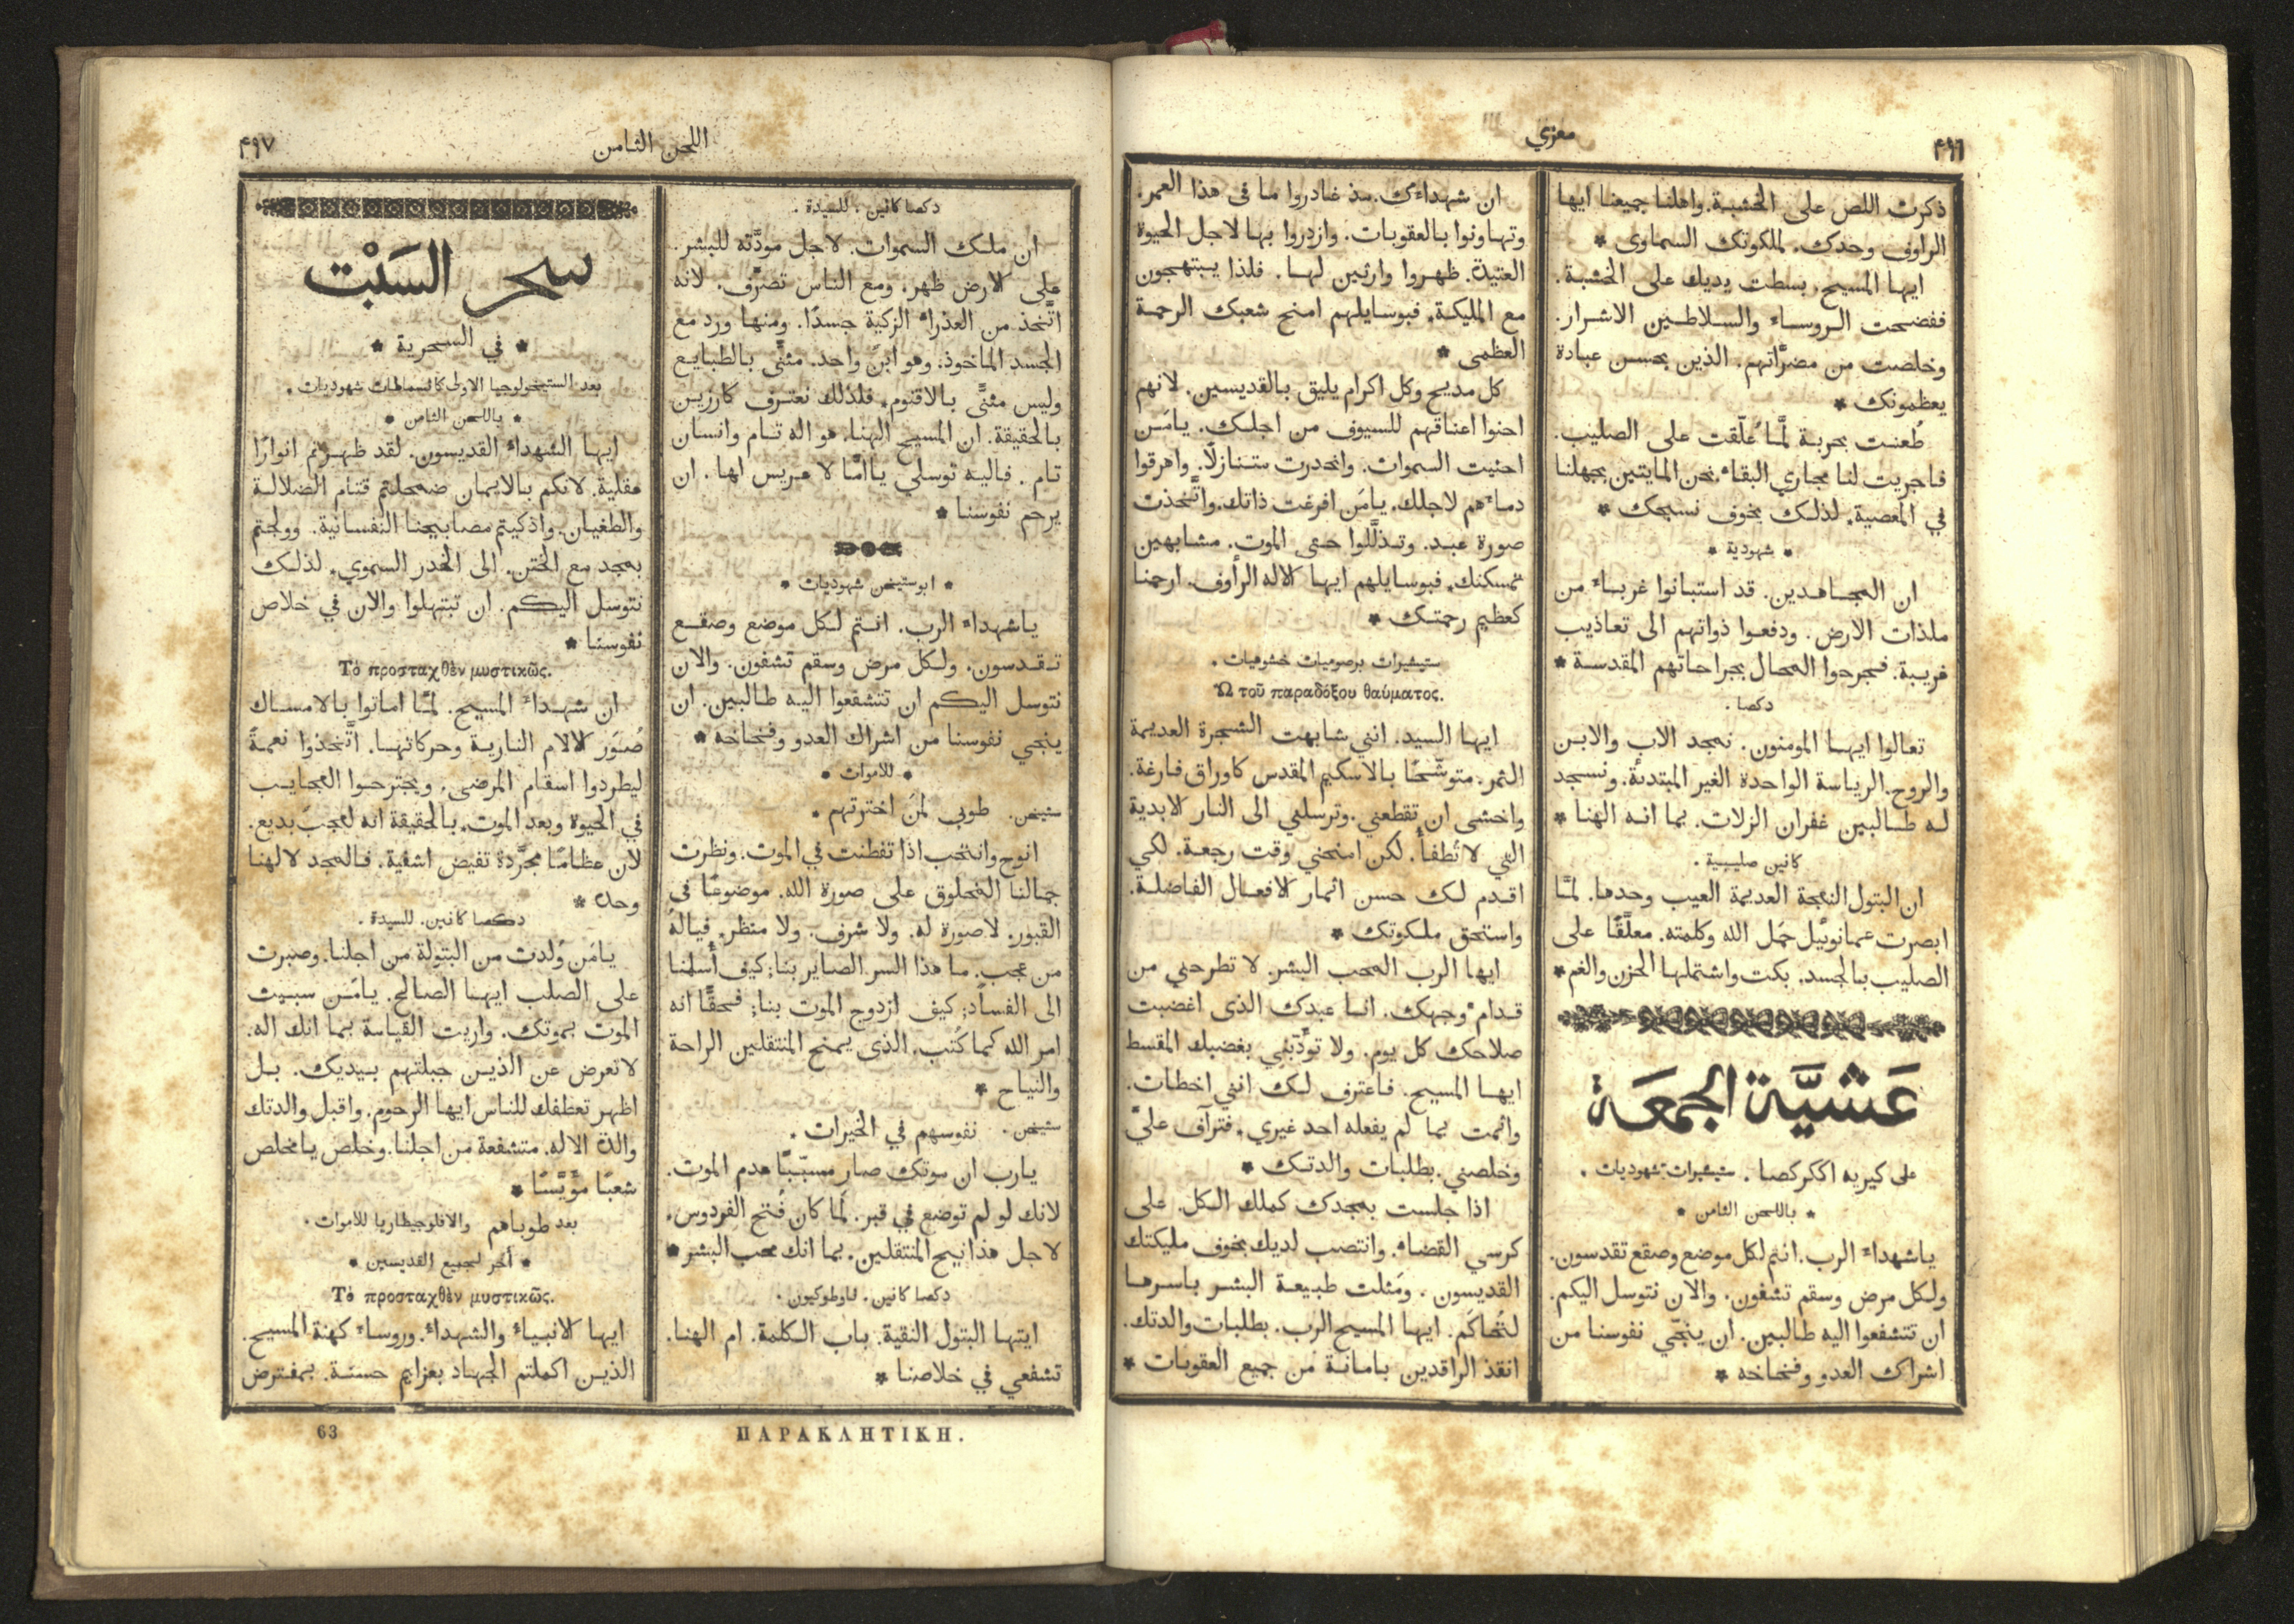 ٤٩٦
معزي
ذكرت اللص على الخشبة. واهلنا جميعنا ايها
الراوف وحدك. لملكوتك السماوى *
ايها المسيح. بسطت يديك على الخشبة.
ففضحت الروساء والسلاطين الاشرار.
وخلصت من مضرَّاتهم. الذين بحسن عبادة
يعظمونك *
طُعنت بحربة لمَّا عُلّقت على الصليب.
فاجريت لنا مجاري البقاء. نحن المايتين بجهلنا
في المعصية. لذلك بخوف نسبحك *
* شهودية *
ان المجاهدين. قد استبانوا غرباء من
ملذات الارض. ودفعوا ذواتهم الى تعاذيب
غريبة. فجرحوا المحال بجراحاتهم المقدسة *
دكصا.
تعالوا ايها المومنون. نمجد الاب والابن
والروح. الرياسة الواحدة الغير المبتدئة. ونسجد
له طالبين غفران الزلات. بما انه الهنا *
كانين صليبية.
ان البتول النعجة العديمة العيب وحدها. لمَّا
ابصرت عمانوئيل حمَل الله وكلمته. معلَّقًا على
الصليب بالجسد. بكت واشتملها الحزن والغم *
عَشيَّة الجمعَة
على كيريه اككركصا. ستيشيرات شهوديات.
* باللحن الثامن *
ياشهداء الرب. انتم لكل موضع وصقع تقدسون.
ولكل مرض وسقم تشفون. والان نتوسل اليكم.
ان تتشفعوا اليه طالبين. ان ينجّي نفوسنا من
اشراك العدو وفخاخه *
ان شهداءك. مذ غادروا ما فى هذا العمر.
وتهاونوا بالعقوبات. وازدروا بها لاجل الحيوة
العتيدة. ظهروا وارثين لها. فلذا يبتهجون
مع المليكة. فبوسايلهم امنح شعبك الرحمة
العظمى *
كل مديح وكل اكرام يليق بالقديسين. لانهم
احنوا اعناقهم للسيوف من اجلك. يامَن
احنيت السموات. وانحدرت متنازلًا. واهرقوا
دماءهم لاجلك. يامَن افرغت ذاتك. واتَّخذت
صورة عبد. وتذلَّلوا حتى الموت. مشابهين
تمسكنك. فبوسايلهم ايها الاله الرأوف. ارحمنا
كعظيم رحمتك *
ستيشيرات برصوميات خشوعيات.
Ὢ τοῦ παραδόξου θαύματος.
ايها السيد. انني شابهت الشجرة العديمة
الثمر. متوشّحًا بالاسكيم المقدس كاوراق فارغة.
واخشى ان تقطعني. وترسلني الى النار الابدية
التي لا تُطفأ. لكن امنحني وقت رجعة. لكي
اقدم لك حسن اثمار الافعال الفاضلة.
واستحق ملكوتك *
ايها الرب المحب البشر. لا تطرحني من
قدام وجهك. انا عبدك الذى اغضبت
صلاحك كل يوم. ولا تودّبني بغضبك المقسط
ايها المسيح. فاعترف لك انني اخطات.
واثمت بما لم يفعله احد غيري. فترآف عليّ
وخلصني. بطلبات والدتك *
اذا جلست بمجدك كملك الكل. على
كرسي القضاء. وانتصب لديك بخوف مليكتك
القديسون. ومَثلت طبيعة البشر باسرها
لتُحاكَم. ايها المسيح الرب. بطلبات والدتك.
انقذ الراقدين بامانة من جميع العقوبات *
اللحن الثامن
٤٩٧
دكصا كانين. للسيدة.
ان ملك السموات. لاجل مودَّته للبشر.
على الارض ظهر. ومع الناس تصرَّف. لانه
اتَّخذ من العذراء الزكية جسدًا. ومنها ورد مع
الجسد الماخوذ. وهو ابنٌ واحد. مثنًّى بالطبايع
وليس مثنًّى بالاقنوم. فلذلك نعترف كارزين
بالحقيقة. ان المسيح الهنا. هو اله تام وانسان
تام. فاليه توسلي ياامًّا لا عريس لها. ان
يرحم نفوسنا *
* ابوستيخن شهوديات *
ياشهداء الرب. انتم لكل موضع وصقع
تقدسون. ولكل مرض وسقم تشفون. والان
نتوسل اليكم ان تتشفعوا اليه طالبين. ان
ينجي نفوسنا من اشراك العدو وفخاخه *
* للاموات *
ستيخن. طوبى لمَن اخترتهم.
انوح وانتحب اذا تفطنت في الموت. ونظرت
جمالنا المخلوق على صورة الله. موضوعًا فى
القبور. لا صورة له. ولا شرف. ولا منظر. فيالهُ
من عجب. ما هذا السر الصاير بنا: كيف أُسلمنا
الى الفساد: كيف ازدوج الموت بنا: فحقًّا انه
امر الله كما كُتب. الذى يمنح المنتقلين الراحة
والنياح *
ستيخن. نفوسهم في الخيرات.
يارب ان موتك صار مسبّبًا هدم الموت.
لانك لو لم توضع في قبر. لَما كان فُتح الفردوس.
لاجل هذا نيح المنتقلين. بما انك محب البشر *
دكصا كانين. ثاوطوكيون.
ايتها البتول النقية. باب الكلمة. ام الهنا.
تشفعي في خلاصنا *
سحر السَبْت
* في السحرية *
بعد الستيخولوجيا الاولى كاثسماطات شهوديات.
* باللحن الثامن *
ايها الشهداء القديسون. لقد ظهرتم انوارًا
عقلية. لانكم بالايمان ضمحلتم قتام الضلالة
والطغيان. واذكيتم مصابيحنا النفسانية. وولجتم
بمجد مع الختن. الى الخدر السموي. لذلك
نتوسل اليكم. ان تبتهلوا والان في خلاص
نفوسنا *
Τὸ προσταχθὲν μυστικῶς.
ان شهداء المسيح. لمَّا اماتوا بالامساك
صُنوَر الالام النارية وحركاتها. اتَّخذوا نعمةً
ليطردوا اسقام المرضى. ويجترحوا العجايب
في الحيوة وبعد الموت. بالحقيقة انه لعجبٌ بديع.
لان عظامًا مجرَّدة تفيض اشفية. فالمجد لالهنا
وحده *
دكصا كانين. للسيدة.
يامَن وُلدت من البتولة من اجلنا. وصبرت
على الصلب ايها الصالح. يامَن سبيت
الموت بموتك. واريت القيامة بما انك اله.
لا تعرض عن الذين جبلتهم بيديك. بل
اظهر تعطفك للناس ايها الرحوم. واقبل والدتك
والدة الاله. متشفعة من اجلنا. وخلص يامخلص
شعبًا مؤيَّسًا *
بعد طوباهم والافلوجيطاريا للاموات.
* أخر لجميع القديسين *
Τὸ προσταχθὲν μυστικῶς.
ايها الانبياء والشهداء. وروساء كهنة المسيح.
الذين اكملتم الجهاد بعزايم حسنة. بمفترض
ΠΑΡΑΚΛΗΤΙΚΗ.
63